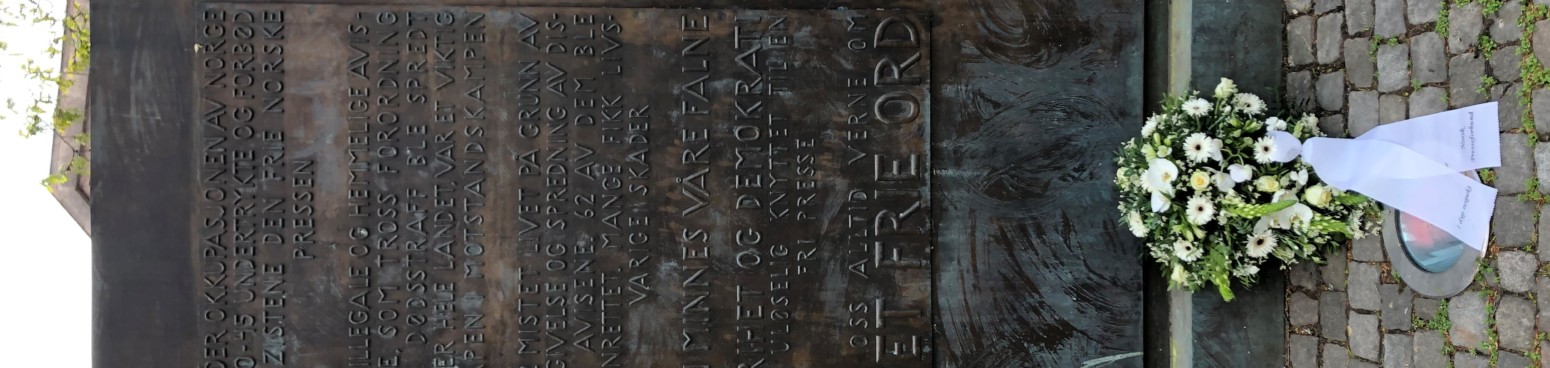 DER OKKUPASJONEN AV NORGE
0-45 UNDERTRYKTE OG FORBØD
ZISTENE DEN FRIE NORSKE
PRESSEN
ILLEGALE OG HEMMELIGE AVIS-
E, SOM TROSS FORORDNING
DØDSSTRAFF BLE SPREDT
ER HELE LANDET, VAR ET VIKTIG
PEN I MOTSTANDSKAMPEN
E MISTET LIVET PÅ GRUNN AV
GIVELSE OG SPREDNING AV DIS-
AVISENE. 62 AV DEM BLE
NRETTET. MANGE FIKK LIVS-
VARIGE SKADER
I MINNES VÅRE FALNE
RIHET OG DEMOKRATI
ULØSELIG KNYTTET TIL EN
FRI PRESSE
OSS ALLTID VERNE OM
ET FRIE ORD
Norsk
Presseforbund